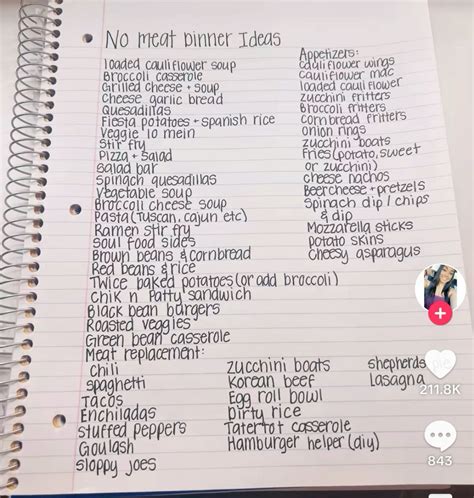 No meat Dinner Ideas
loaded cauliflower soup
Broccoli casserole
Grilled cheese + soup
Cheese garlic bread
Quesadillas
Fiesta potatoes + spanish rice
Veggie lo mein
Stir fry
Pizza + salad
Salad bar
Spinach quesadillas
Vegetable soup
Broccoli cheese soup
Pasta (Tuscan, cajun etc)
Ramen stir fry
Soul food sides
Brown beans & cornbread
Red beans & rice
Twice baked potatoes (or add broccoli)
Chik n Patty sandwich
Black bean burgers
Roasted veggies
Green bean casserole
Appetizers:
cauliflower wings
Cauliflower mac
loaded cauliflower
zucchini fritters
Broccoli fritters
corn bread fritters
onion rings
zucchini boats
Fries (potato, sweet
or zucchini)
cheese nachos
Beercheese + pretzels
Spinach dip / chips
& dip
Mozzarella sticks
potato skins
Cheesy asparagus
Meat replacement:
Chili
spaghetti
Tacos
Enchiladas
stuffed peppers
Goulash
sloppy joes
zucchini boats
Korean beef
Egg roll bowl
Dirty rice
Tatertot casserole
Hamburger helper (diy)
shepherds
Lasagna
211.8K
843